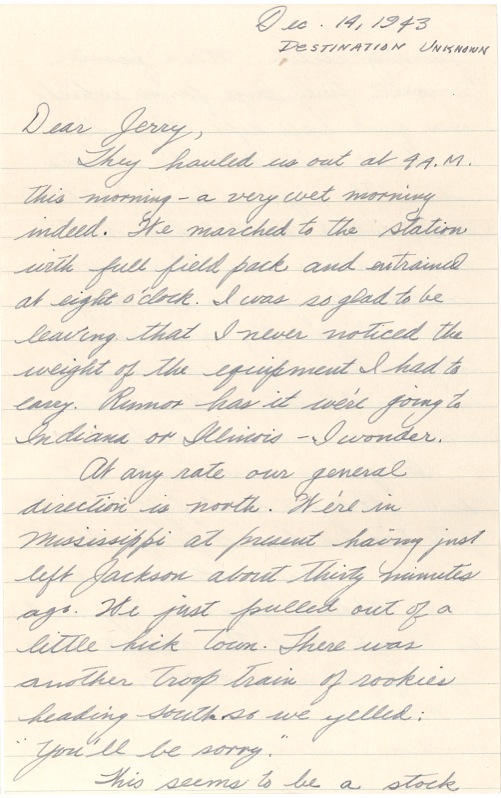 Dec. 14, 1943
DESTINATION UNKNOWN
Dear Jerry,
They hauled us out at 4 A.M.
this morning - a very wet morning
indeed. We marched to the station
with full field pack and entrained
at eight o'clock. I was so glad to be
leaving that I never noticed the
weight of the equipment I had to
carry. Rumor has it we're going to
Indiana or Illinois - I wonder.
At any rate our general
direction is north. We're in
Mississippi at present having just
left Jackson about thirty minutes
ago. We just pulled out of a
little hick town. There was
another troop train of rookies
heading south so we yelled:
"You'll be sorry."
This seems to be a stock